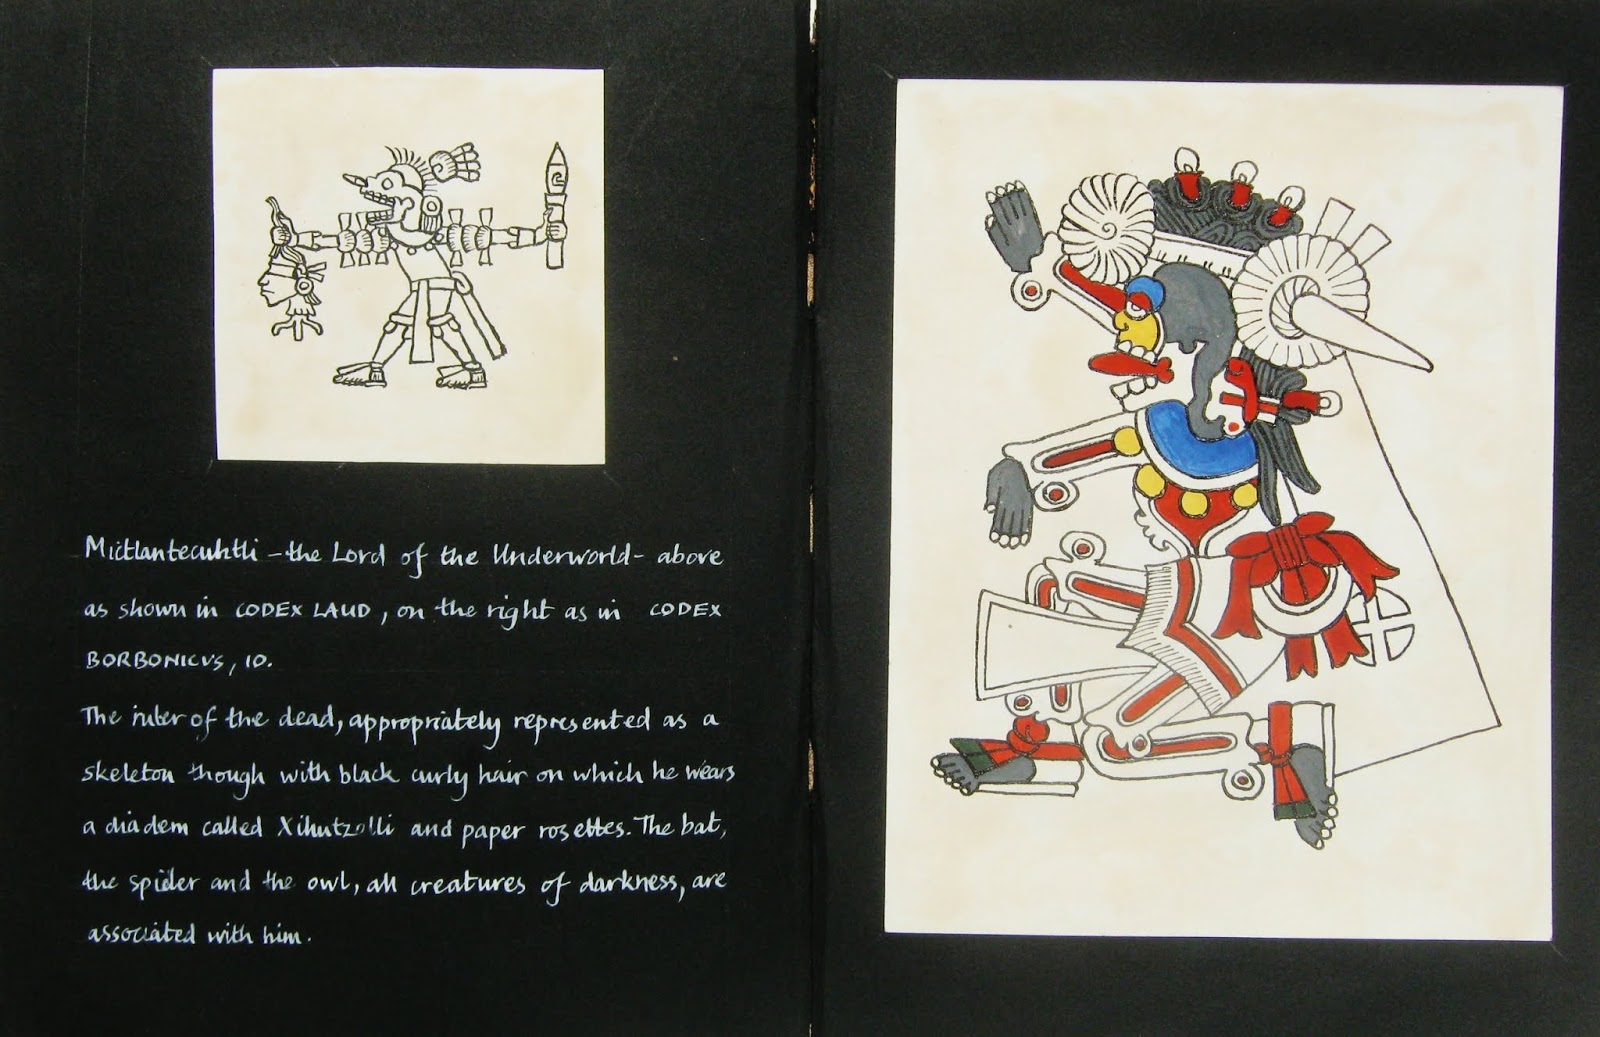 Mictlantecuhtli – the Lord of the Underworld – above
as shown in CODEX LAUD, on the right as in CODEX
BORBONICUS, 10.
The ruler of the dead, appropriately represented as a
skeleton though with black curly hair on which he wears
a diadem called Xihutzolli and paper rosettes. The bat,
the spider and the owl, all creatures of darkness, are
associated with him.